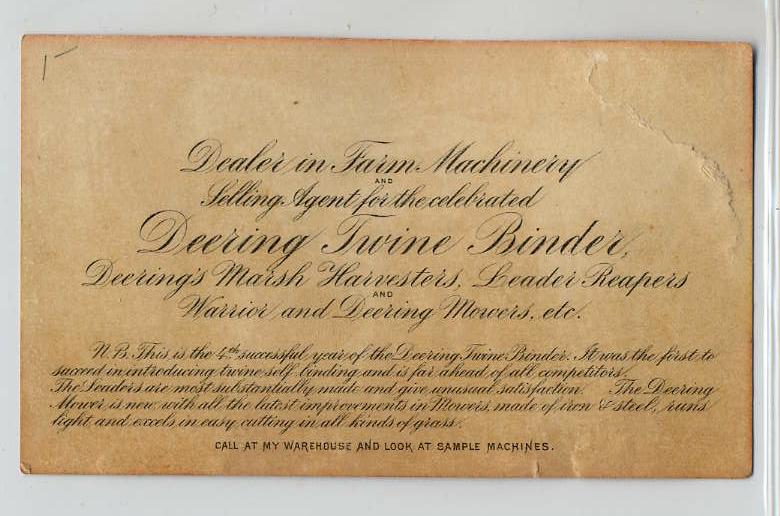 Dealer in Farm Machinery
AND
Selling Agent for the celebrated
Deering Twine Binder,
Deering's Marsh Harvesters, Leader Reapers
AND
Warrior and Deering Mowers, etc.
N.B. This is the 4th successful year of the Deering Twine Binder. It was the first to
succeed in introducing twine self-binding and is far ahead of all competitors.
The Leaders are most substantially made and give unusual satisfaction. The Deering
Mower is new with all the latest improvements in Mowers, made of iron & steel, runs
light and excels in easy cutting in all kinds of grass.
CALL AT MY WAREHOUSE AND LOOK AT SAMPLE MACHINES.